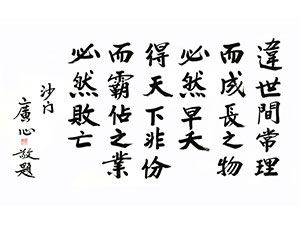 違世間常理
而成長之物
必然早夭
得天下非份
而霸佔之業
必然敗亡
沙門
廣心敬題